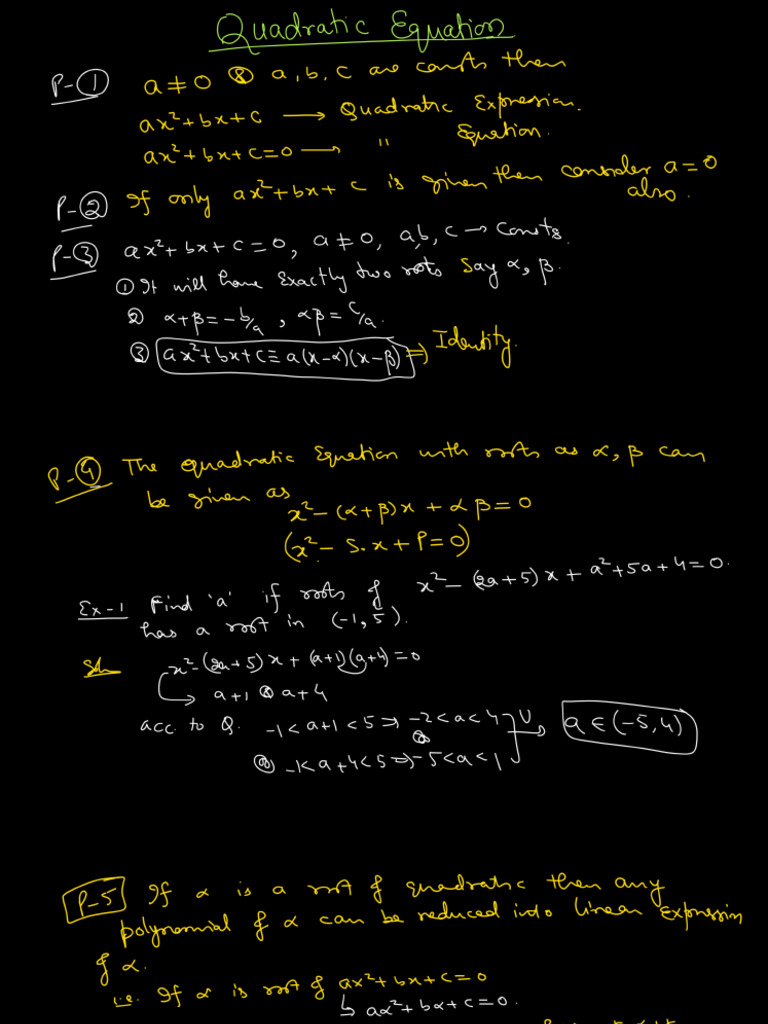 Quadratic Equation
P-① a ≠ 0 & a, b, c are consts then
ax²+bx+c → Quadratic Expression.
ax²+bx+c=0 → " Equation.
P-② If only ax²+bx+c is given then consider a=0
also.
P-③ ax²+bx+c=0, a≠0, a,b,c → Consts.
① It will have Exactly two roots Say α, β.
② α+β=-b/a, αβ=c/a.
③ ax²+bx+c≡a(x-α)(x-β) ⇒ Identity.
P-④ The quadratic Equation with roots as α, β can
be given as
x²-(α+β)x+αβ=0
(x²-S.x+P=0)
Ex-1 Find 'a' if roots of x²-(2a+5)x+a²+5a+4=0.
has a root in (-1,5).
Sol x²-(2a+5)x+(a+1)(a+4)=0
a+1 & a+4
acc. to Q. -1<a+1<5 ⇒ -2<a<4 U → a∈(-5,4)
or
or -1<a+4<5 ⇒ -5<a<1
P-5 If α is a root of quadratic then any
polynomial of α can be reduced into linear Expression
of α.
i.e. If α is root of ax²+bx+c=0
↳ aα²+bα+c=0.